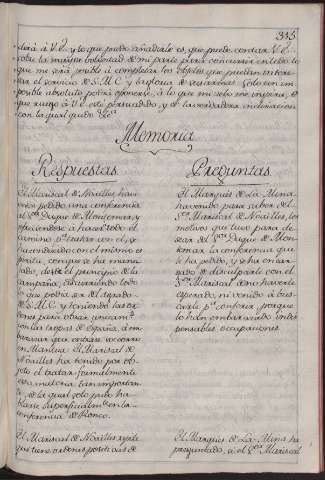 335
dirá à V.E. y lo que puedo añadirle es, que puede contar V.E.
sobre la mayor voluntad de mi parte para concurrir en todo lo
que me será posible à completar los objetos que puedan intere-
sar el servicio de S.M.C. y la gloria de sus armas. Solo un im-
posible absoluto podrá oponerse à lo que mi zelo me inspira, è
que ruego à V.E. esté persuadido, y de la verdadera inclinacion
con la qual quedo &c.ª
Memoria
Respuestas
El Mariscal de Noailles havi-
endo pedido una conferencia
al S.or Duque de Montemar, y
ofreciendose à hacer todo el
camino p.ª tratar con el, se
ha conducido con el mismo es-
piritu con que se ha mane-
jado, desde el principio de la
campaña, discurriendo todo
que podia ser del agrado
de S.M.C. y teniendo las or-
denes para obrar unidam.te
con las tropas de España, è em-
barazar que entrase socorro
en Mantua. El Mariscal de
Noailles ha tenido por ob-
jeto el tratar formalmente
esta materia tan importan-
te, de la qual solo pudo ha-
blarse superficialm.te en la
conferencia de
El Mariscal de Noailles repite
que tiene ordenes positivas de
Preguntas
El Marques de la Mina
haviendo para saver del
S.or Mariscal de Noailles, los
motivos que tuvo para de-
sear del S.or Duque de Mon-
temar la conferencia que
le ha pedido, y se ha encar-
gado de disculparle con el
S.or Mariscal de no haverle
esperado, ni venido à bus-
carle p.ª conferir, porque
lo han embarazado indis-
pensables ocupaciones.
El Marques de la Mina ha
preguntado, si el S.or Mariscal